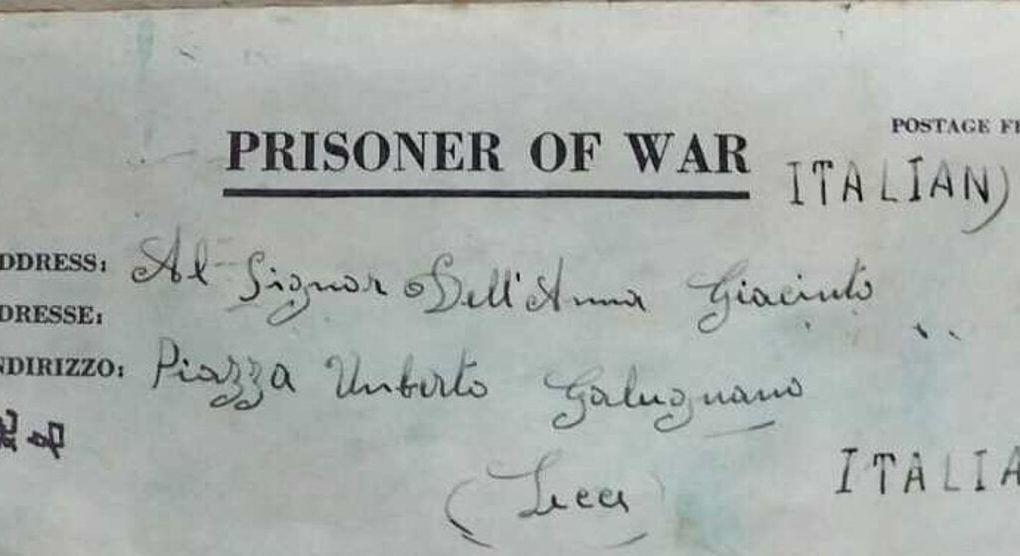 POSTAGE FR
PRISONER OF WAR
ITALIAN)
DDRESS: Al Signor Dell'Anna Giacinto
DRESSE:
NDIRIZZO: Piazza Umberto Galugnano
(Lecce)
ITALIA